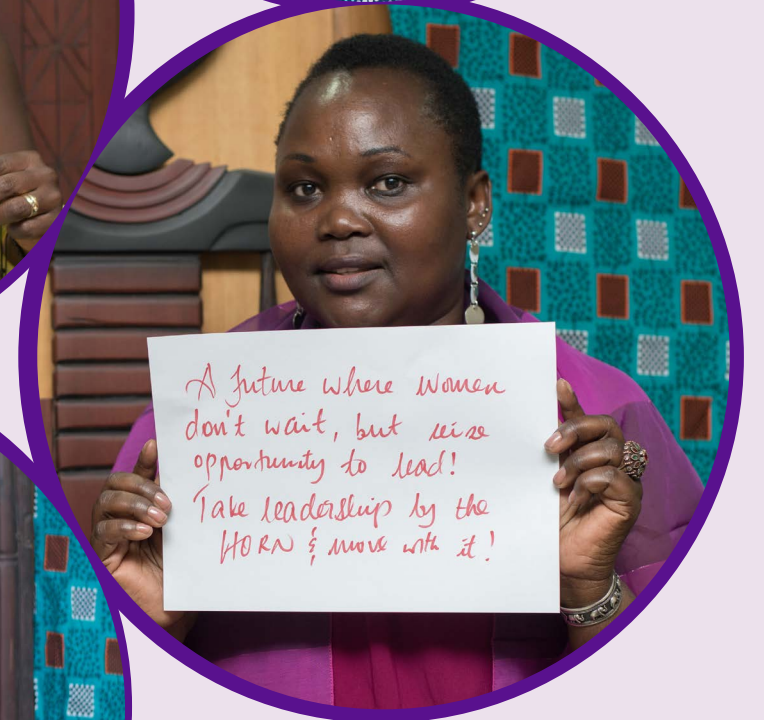 A future where women
don't wait, but seize
opportunity to lead!
Take leadership by the
HORN & move with it!